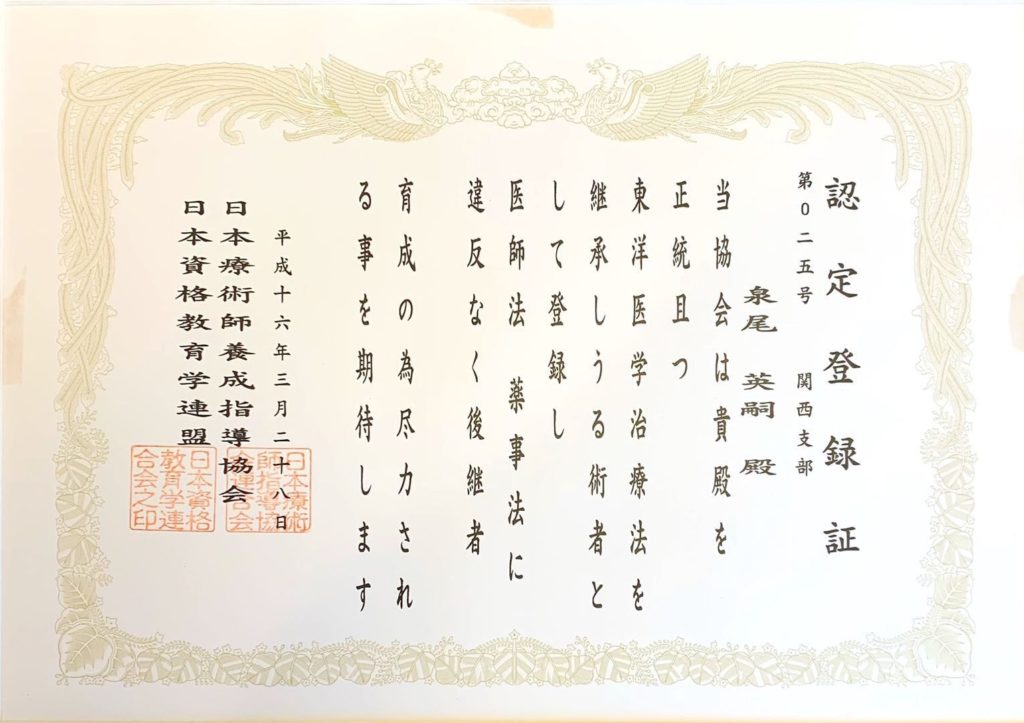 認定登録証
第0二五号 関西支部
泉尾 英嗣 殿
当協会は貴殿を
正統且つ
東洋医学治療法を
継承しうる術者と
して登録し
医師法 薬事法に
違反なく後継者
育成の為尽力され
る事を期待します
平成十六年三月二十八日
日本療術師養成指導協会
日本資格教育学連盟
日本療術
師指導協
会連合会
日本資格
教育学連
合会之印